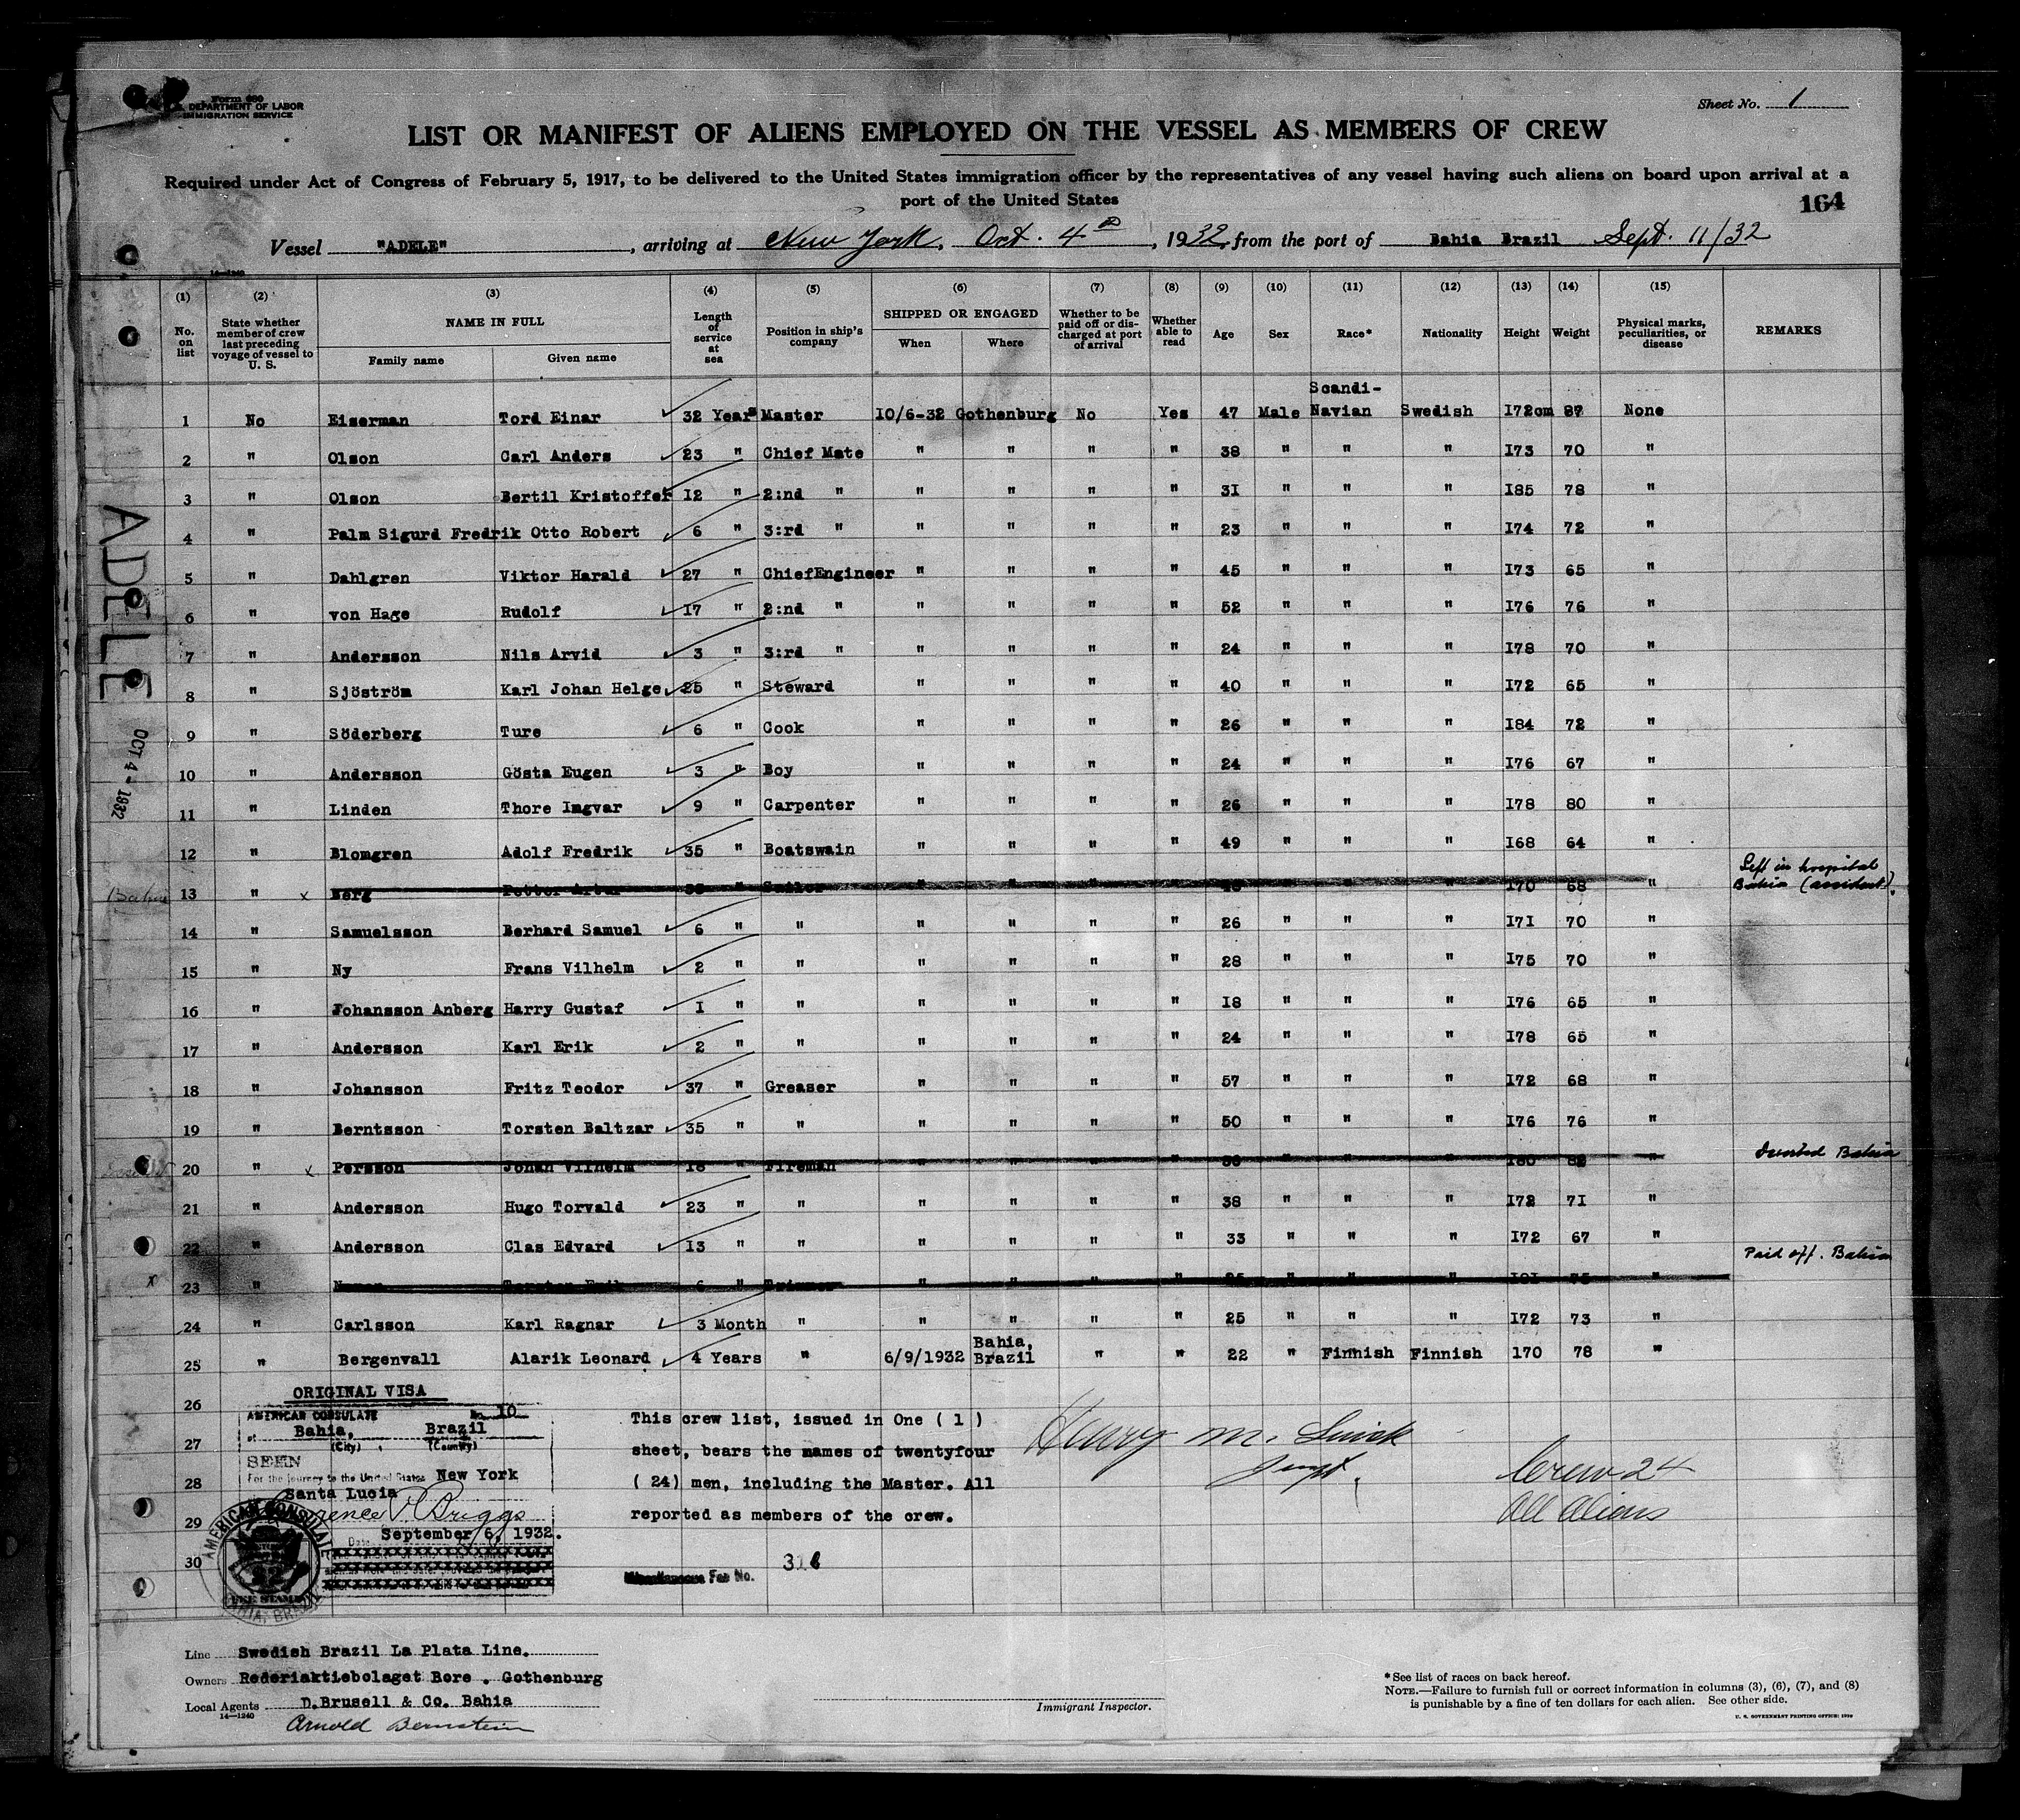 Form 680
U. S. DEPARTMENT OF LABOR
IMMIGRATION SERVICE
Sheet No. 1
LIST OR MANIFEST OF ALIENS EMPLOYED ON THE VESSEL AS MEMBERS OF CREW
Required under Act of Congress of February 5, 1917, to be delivered to the United States immigration officer by the representatives of any vessel having such aliens on board upon arrival at a
port of the United States
164
Vessel "ADELE", arriving at New York, Oct. 4th, 1932, from the port of Bahia Brazil Sept. 11/32
14—1240
(1) (2) (3) (4) (5) (6) (7) (8) (9) (10) (11) (12) (13) (14) (15)
No. on list
State whether member of crew last preceding voyage of vessel to U. S.
NAME IN FULL
Family name
Given name
Length of service at sea
Position in ship's company
SHIPPED OR ENGAGED
When
Where
Whether to be paid off or discharged at port of arrival
Whether able to read
Age
Sex
Race*
Nationality
Height
Weight
Physical marks, peculiarities, or disease
REMARKS
Scandi-
1 No Eiserman Tord Einar 32 Years Master 10/6-32 Gothenburg No Yes 47 Male Navian Swedish 172cm 87 None
2 " Olson Carl Anders 23 " Chief Mate " " " " 38 " " " 173 70 "
3 " Olson Bertil Kristoffer 12 " 2:nd " " " " " 31 " " " 185 78 "
4 " Palm Sigurd Fredrik Otto Robert 6 " 3:rd " " " " " 23 " " " 174 72 "
5 " Dahlgren Viktor Harald 27 " ChiefEngineer " " " " 45 " " " 173 65 "
6 " von Hage Rudolf 17 " 2:nd " " " " " 52 " " " 176 76 "
7 " Andersson Nils Arvid 3 " 3:rd " " " " " 24 " " " 178 70 "
8 " Sjöström Karl Johan Helge 25 " Steward " " " " 40 " " " 172 65 "
9 " Söderberg Ture 6 " Cook " " " " 26 " " " 184 72 "
10 " Andersson Gösta Eugen 3 " Boy " " " " 24 " " " 176 67 "
11 " Linden Thore Ingvar 9 " Carpenter " " " " 26 " " " 178 80 "
12 " Blomgren Adolf Fredrik 35 " Boatswain " " " " 49 " " " 168 64 "
Bahia 13 " x Berg Petter Artur " Sailor " " " " " " " 170 68 " Left in hospital Bahia (assident).
14 " Samuelsson Berhard Samuel 6 " " " " " " 26 " " " 171 70 "
15 " Ny Frans Vilhelm 2 " " " " " " 28 " " " 175 70 "
16 " Johansson Anberg Harry Gustaf 1 " " " " " " 18 " " " 176 65 "
17 " Andersson Karl Erik 2 " " " " " " 24 " " " 178 65 "
18 " Johansson Fritz Teodor 37 " Greaser " " " " 57 " " " 172 68 "
19 " Berntsson Torsten Baltzar 35 " " " " " " 50 " " " 176 76 "
20 " x Persson Johan Vilhelm 18 " Fireman " " " " " " " 180 " Deserted Bahia
21 " Andersson Hugo Torvald 23 " " " " " " 38 " " " 172 71 "
22 " Andersson Clas Edvard 13 " " " " " " 33 " " " 172 67 "
x 23 " Torsten Emik 6 " Trimmer " " " " " " " 75 " Paid off. Bahia
24 " Carlsson Karl Ragnar 3 Month " " " " " 25 " " " 172 73 "
25 " Bergenvall Alarik Leonard 4 Years " 6/9/1932 Bahia, Brazil " " 22 " Finnish Finnish 170 78 "
26
27
28
29
30
ADELE
OCT 4 - 1932
ORIGINAL VISA
AMERICAN CONSULATE No. 10
at Bahia, Brazil
(City) (Country)
SEEN
For the journey to the United States New York
Santa Lucia
Lawrence P. Briggs
September 6, 1932.
Date
AMERICAN CONSULATE
FEE STAMP
BAHIA, BRAZIL
This crew list, issued in One ( 1 )
sheet, bears the names of twentyfour
( 24) men, including the Master. All
reported as members of the crew.
Miscellaneous Fee No. 316
Henry M.
Crew 24
All Aliens
Line Swedish Brazil La Plata Line.
Owners Rederiaktiebolaget Bore . Gothenburg
Local Agents D.Brusell & Co. Bahia
14—1240
Arnold Bernstein
Immigrant Inspector.
*See list of races on back hereof.
NOTE.—Failure to furnish full or correct information in columns (3), (6), (7), and (8)
is punishable by a fine of ten dollars for each alien. See other side.
U. S. GOVERNMENT PRINTING OFFICE: 1929